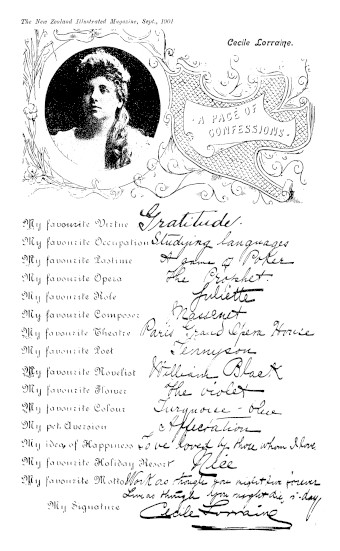 The New Zealand Illustrated Magazine, Sept., 1901
Cecile Lorraine.
·A PAGE OF
CONFESSIONS·
My favourite Virtue Gratitude.
My favourite Occupation Studying languages
My favourite Pastime A game of Poker
My favourite Opera The Prophet.
My favourite Role Juliette
My favourite Composer Massenet
My favourite Theatre Paris Grand Opera House
My favourite Poet Tennyson
My favourite Novelist William Black
My favourite Flower The violet
My favourite Colour Turquoise-blue
My pet Aversion Affectation
My idea of Happiness To be loved by those whom I love
My favourite Holiday Resort Nice
My favourite Motto Work as though you might live forever
Live as though you might die to-day
My Signature Cecile Lorraine